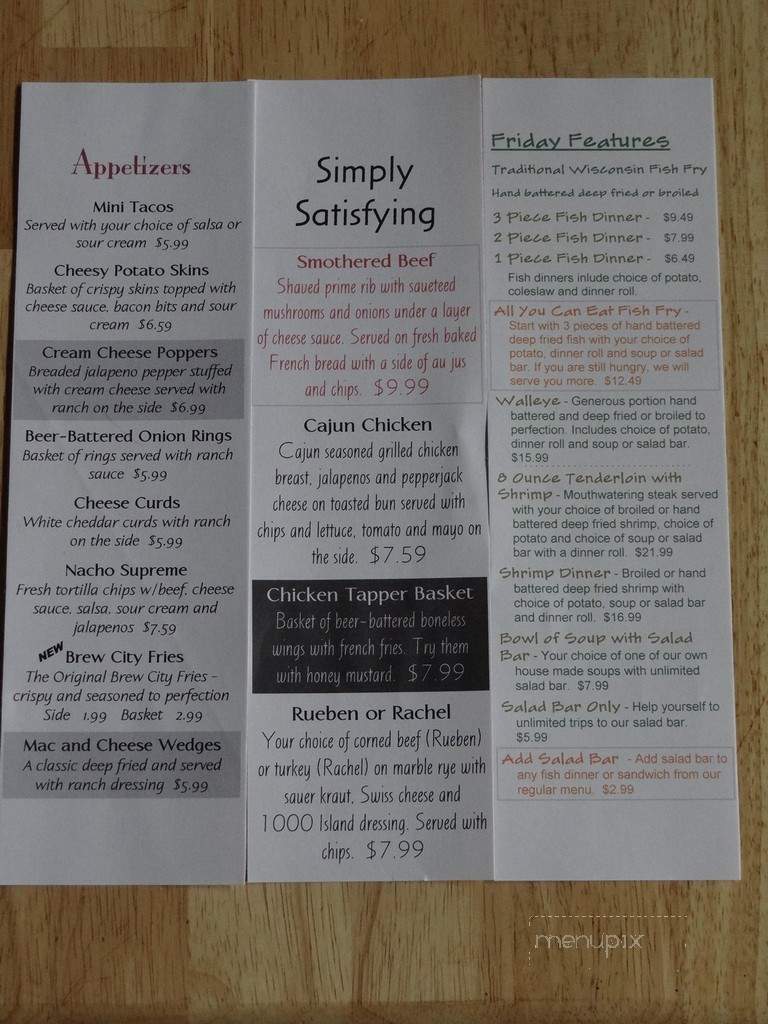 Appetizers
Mini Tacos
Served with your choice of salsa or
sour cream $5.99
Cheesy Potato Skins
Basket of crispy skins topped with
cheese sauce, bacon bits and sour
cream $6.59
Cream Cheese Poppers
Breaded jalapeno pepper stuffed
with cream cheese served with
ranch on the side $6.99
Beer-Battered Onion Rings
Basket of rings served with ranch
sauce $5.99
Cheese Curds
White cheddar curds with ranch
on the side $5.99
Nacho Supreme
Fresh tortilla chips w/beef, cheese
sauce, salsa, sour cream and
jalapenos $7.59
NEW Brew City Fries
The Original Brew City Fries -
crispy and seasoned to perfection
Side 1.99 Basket 2.99
Mac and Cheese Wedges
A classic deep fried and served
with ranch dressing $5.99
Simply
Satisfying
Smothered Beef
Shaved prime rib with saueteed
mushrooms and onions under a layer
of cheese sauce. Served on fresh baked
French bread with a side of au jus
and chips. $9.99
Cajun Chicken
Cajun seasoned grilled chicken
breast, jalapenos and pepperjack
cheese on toasted bun served with
chips and lettuce, tomato and mayo on
the side. $7.59
Chicken Tapper Basket
Basket of beer-battered boneless
wings with french fries. Try them
with honey mustard. $7.99
Rueben or Rachel
Your choice of corned beef (Rueben)
or turkey (Rachel) on marble rye with
sauer kraut, Swiss cheese and
1000 Island dressing. Served with
chips. $7.99
Friday Features
Traditional Wisconsin Fish Fry
Hand battered deep fried or broiled
3 Piece Fish Dinner - $9.49
2 Piece Fish Dinner - $7.99
1 Piece Fish Dinner - $6.49
Fish dinners inlude choice of potato,
coleslaw and dinner roll.
All You Can Eat Fish Fry -
Start with 3 pieces of hand battered
deep fried fish with your choice of
potato, dinner roll and soup or salad
bar. If you are still hungry, we will
serve you more. $12.49
Walleye - Generous portion hand
battered and deep fried or broiled to
perfection. Includes choice of potato,
dinner roll and soup or salad bar.
$15.99
8 Ounce Tenderloin with
Shrimp - Mouthwatering steak served
with your choice of broiled or hand
battered deep fried shrimp, choice of
potato and choice of soup or salad
bar with a dinner roll. $21.99
Shrimp Dinner - Broiled or hand
battered deep fried shrimp with
choice of potato, soup or salad bar
and dinner roll. $16.99
Bowl of Soup with Salad
Bar - Your choice of one of our own
house made soups with unlimited
salad bar. $7.99
Salad Bar Only - Help yourself to
unlimited trips to our salad bar.
$5.99
Add Salad Bar - Add salad bar to
any fish dinner or sandwich from our
regular menu. $2.99
menupix